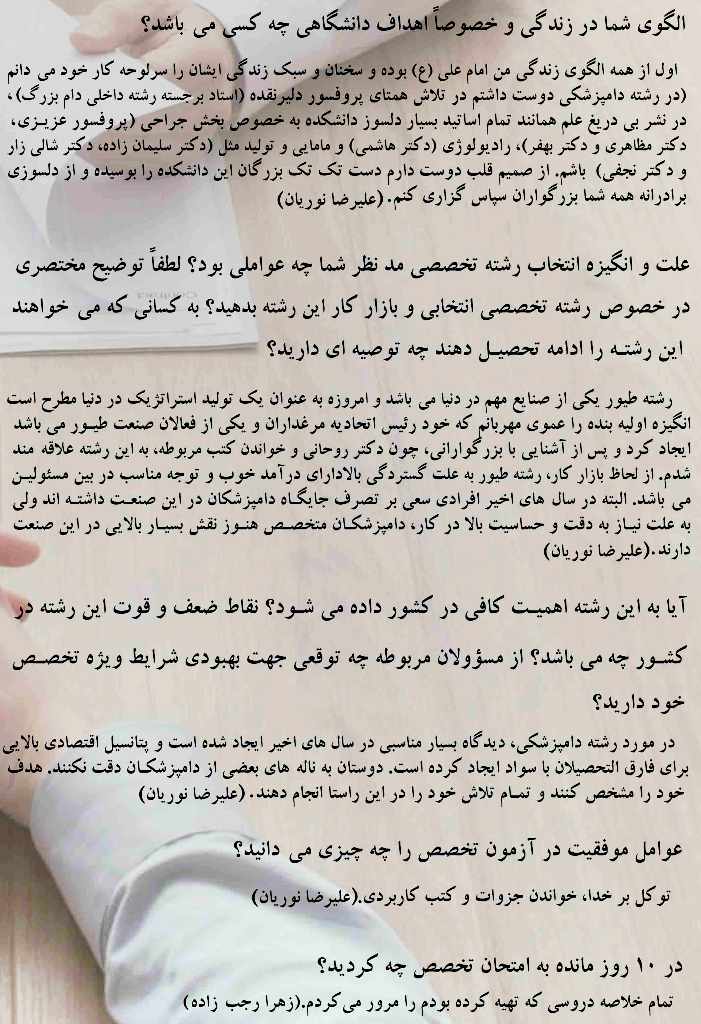 الگوی شما در زندگی و خصوصاً اهداف دانشگاهی چه کسی می باشد؟
اول از همه الگوی زندگی من امام علی (ع) بوده و سخنان و سبک زندگی ایشان را سرلوحه کار خود می دانم
(در رشته دامپزشکی دوست داشتم در تلاش همتای پروفسور دلیرنقده (استاد برجسته رشته داخلی دام بزرگ)،
در نشر بی دریغ علم همانند تمام اساتید بسیار دلسوز دانشکده به خصوص بخش جراحی (پروفسور عزیزی،
دکتر مظاهری و دکتر بهفر)، رادیولوژی (دکتر هاشمی) و مامایی و تولید مثل (دکتر سلیمان زاده، دکتر شالی زار
و دکتر نجفی) باشم. از صمیم قلب دوست دارم دست تک تک بزرگان این دانشکده را بوسیده و از دلسوزی
برادرانه همه شما بزرگواران سپاس گزاری کنم. (علیرضا نوریان)
علت و انگیزه انتخاب رشته تخصصی مد نظر شما چه عواملی بود؟ لطفاً توضیح مختصری
در خصوص رشته تخصصی انتخابی و بازار کار این رشته بدهید؟ به کسانی که می خواهند
این رشته را ادامه تحصیل دهند چه توصیه ای دارید؟
رشته طیور یکی از صنایع مهم در دنیا می باشد و امروزه به عنوان یک تولید استراتژیک در دنیا مطرح است
انگیزه اولیه بنده را عموی مهربانم که خود رئیس اتحادیه مرغداران و یکی از فعالان صنعت طیور می باشد
ایجاد کرد و پس از آشنایی با بزرگوارانی، چون دکتر روحانی و خواندن کتب مربوطه، به این رشته علاقه مند
شدم. از لحاظ بازار کار، رشته طیور به علت گستردگی بالادارای درآمد خوب و توجه مناسب در بین مسئولین
می باشد. البته در سال های اخیر افرادی سعی بر تصرف جایگاه دامپزشکان در این صنعت داشته اند ولی
به علت نیاز به دقت و حساسیت بالا در کار، دامپزشکان متخصص هنوز نقش بسیار بالایی در این صنعت
دارند.(علیرضا نوریان)
آیا به این رشته اهمیت کافی در کشور داده می شود؟ نقاط ضعف و قوت این رشته در
کشور چه می باشد؟ از مسؤولان مربوطه چه توقعی جهت بهبودی شرایط ویژه تخصص
خود دارید؟
در مورد رشته دامپزشکی، دیدگاه بسیار مناسبی در سال های اخیر ایجاد شده است و پتانسیل اقتصادی بالایی
برای فارق التحصیلان با سواد ایجاد کرده است. دوستان به ناله های بعضی از دامپزشکان دقت نکنند. هدف
خود را مشخص کنند و تمام تلاش خود را در این راستا انجام دهند. (علیرضا نوریان)
عوامل موفقیت در آزمون تخصص را چه چیزی می دانید؟
توکل بر خدا، خواندن جزوات و کتب کاربردی.(علیرضا نوریان)
در ۱۰ روز مانده به امتحان تخصص چه کردید؟
تمام خلاصه دروسی که تهیه کرده بودم را مرور می‌کردم.(زهرا رجب زاده)